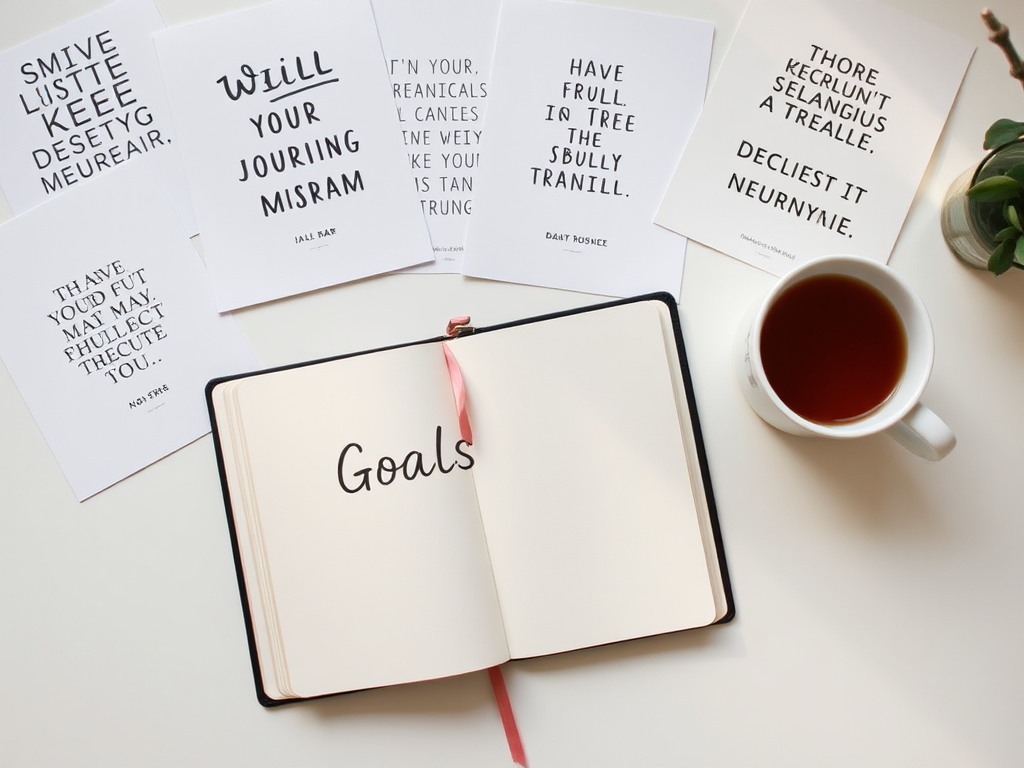 SMIVE
LUSTTE
KEEE
DESETYG
MEUREAIR.
WIILL
YOUR
JOURIING
MISRAM
IALL BAR
T'N YOUR,
REANICALS
L CANIES
INE WEIY
KE YOUI
IS TAN
TRUNG
HAVE
FRULL.
IQ TREE
THE
SBULLY
TRANILL.
DANT ROSNCE
THORE
KECRLUN'T
SELANGIUS
A TREALLE.
DECLIEST IT
NEURNYNIE.
THAAVE
YOURD FUT
MAT MAY,
FHULLECT
THECUTE
TOU..
Goals